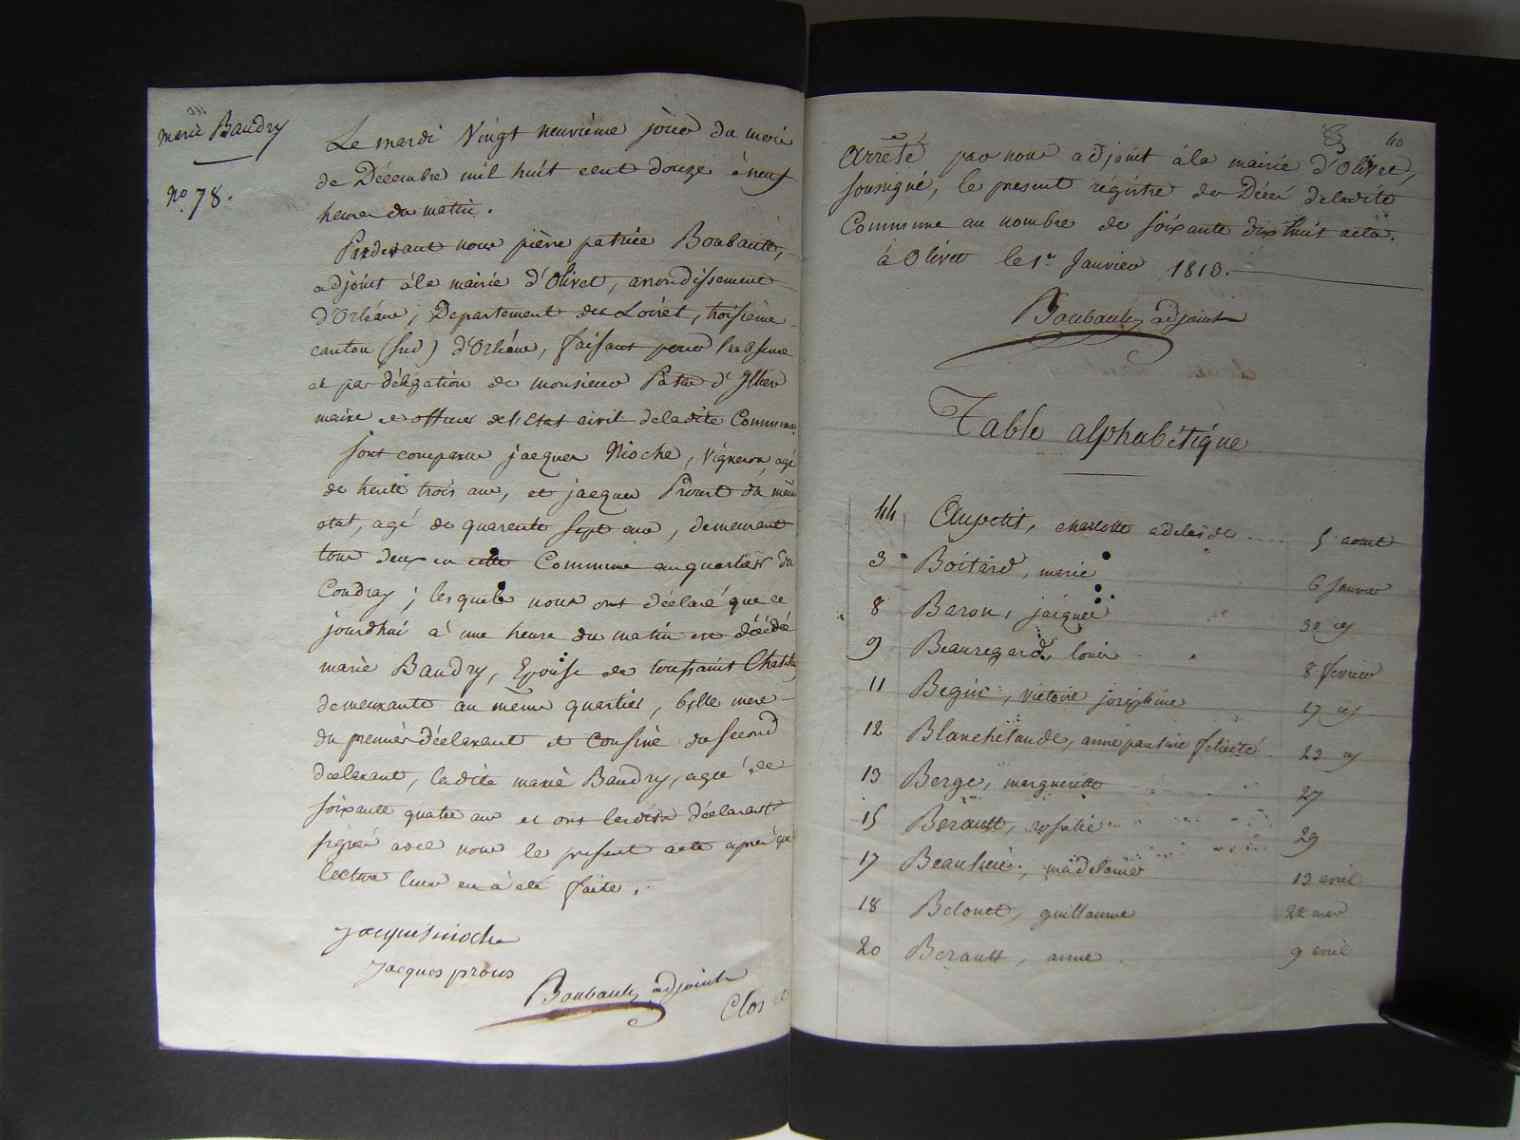 marie Baudry
No. 78.
Le mardi Vingt neuvième jour du mois
de Décembre mil huit cent douze à neuf
heures du matin.
Pardevant nous pierre patrice Boubault,
adjoint à la mairie d'Olivet, arrondissement
d'Orléans, Departement du Loiret, troisième
canton (sud) d'Orléans, faisant pour l'absence
et par délégation de monsieur
maire et officier de l'Etat civil de ladite Commune
sont comparus jacques Nioche, Vigneron, agé
de trente trois ans, et jacques Proust du même
etat, agé de quarente sept ans, demeurant
tous deux en cette Commune au quartier du
Coudray; lesquels nous ont déclaré que ce
jourdhui à une heure du matin est décédé
marie Baudry, Epouse de toussaint
demeurante au même quartier, belle mere
du premier déclarant et cousine du second
déclarant, ladite marie Baudry, agée de
soixante quatre ans et ont lesdits déclarant
signés avec nous le present acte après que
lecture leur en à été faite.
jacques nioche
jacques prous
Boubault adjoint
Clos
40
Arrêté par nous adjoint à la mairie d'Olivet,
soussigné, le present régistre des Décès de ladite
Commune au nombre de soixante dix huit actes.
à Olivet le 1er Janvier 1813.
Boubault adjoint
Table alphabétique
44 Aupetit, charlotte adelaïde 5 aout
3 Boitard, marie 6 Janvier
8 Baron, jacques 30 id
9 Beauregard, louis 8 fevrier
11 Beguc, victoire joséphine 17 id
12 Blanchelaude, anne pauline felicité 23 id
13 Berge, marguerite 27
15 Berault, rosalie 29
17 Beaulieu, madelaine 13 avril
18 Belouet, guillaume 22 mar
20 Berault, anne 9 avril